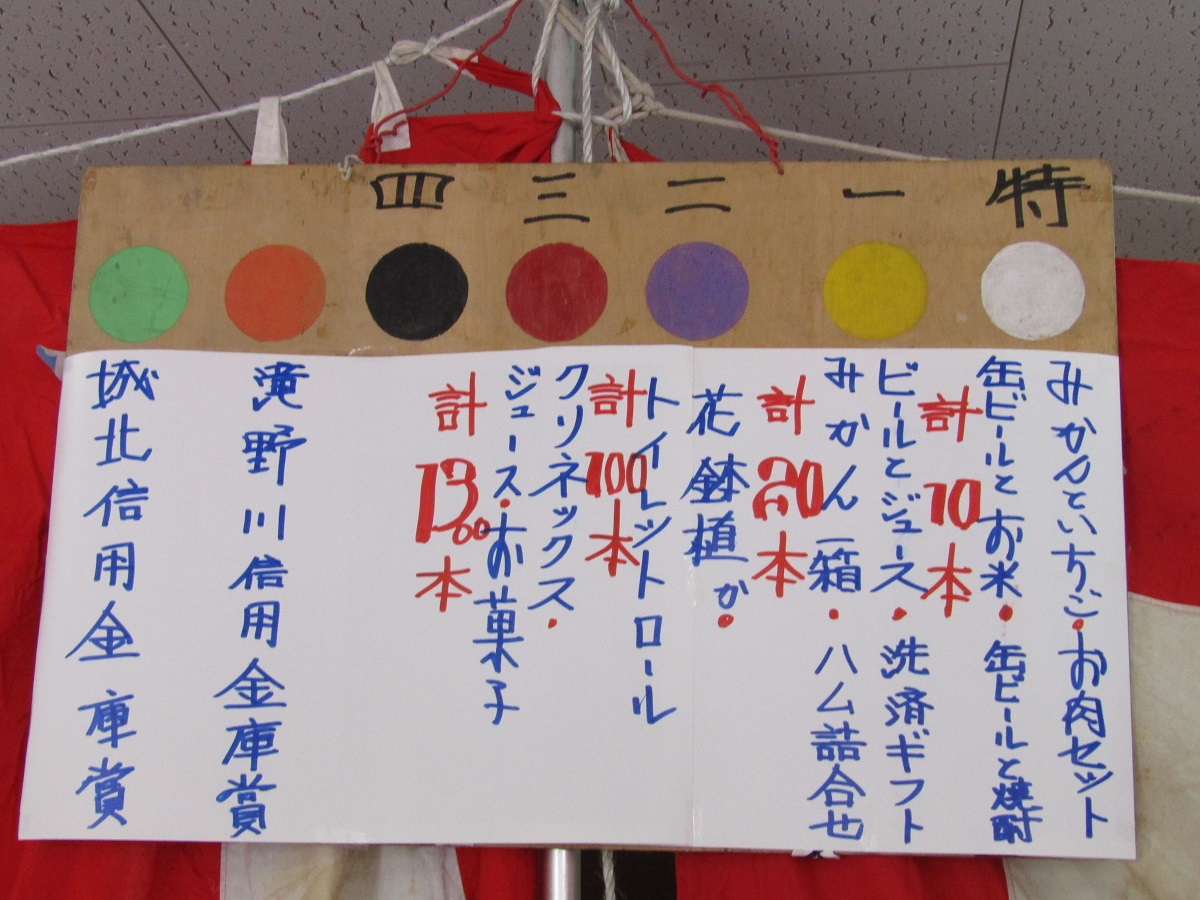 特
一
二
三
四
みかんといちご・お肉セット
缶ビールとお米・缶ビールと焼酎
計10本
ビールとジュース・洗済ギフト
みかん一箱・ハム詰合せ
計20本
花鉢植か・
トイレットロール
計100本
クリネックス・
ジュース・お菓子
計1300本
滝野川信用金庫賞
城北信用金庫賞